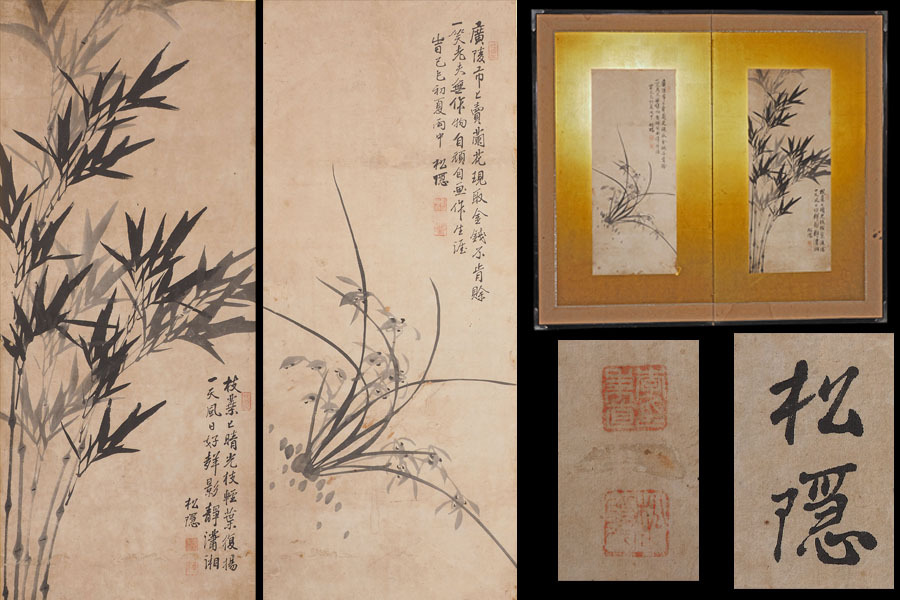 枝葉上晴光枝輕葉復揚
一天風日好群影靜瀟湘
松隠
廣陵市上賣蘭花現取金錢不肯賒
一笑老夫無作物自頑自畫作生涯
峕己巳初夏雨中 松隠
松隠